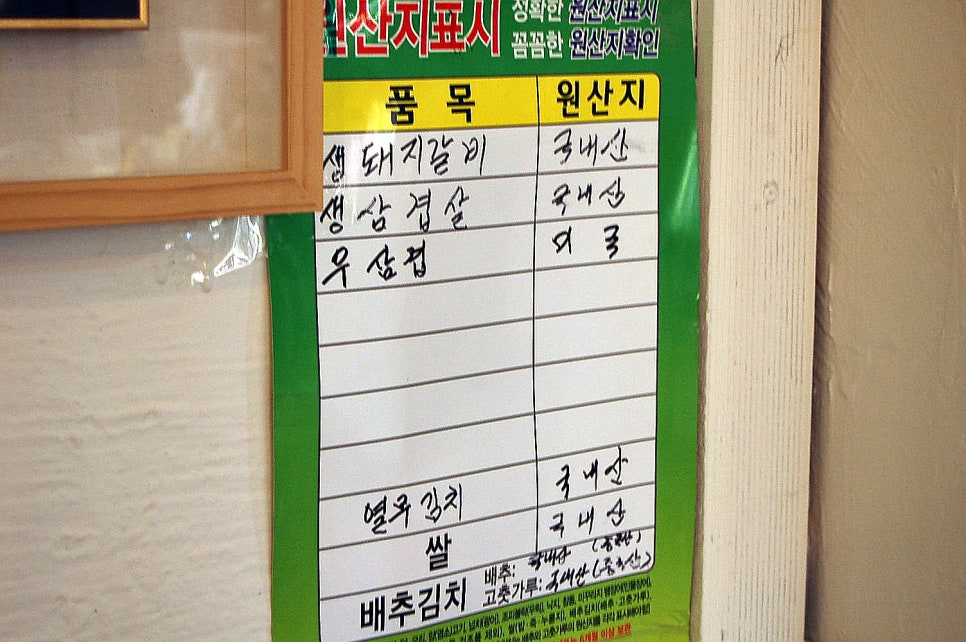 원산지표시 정확한 원산지표시
꼼꼼한 원산지확인
품 목 원산지
생돼지갈비 국내산
생삼겹살 국내산
우삼겹 외국
열무김치 국내산
쌀 국내산
배추김치 배추: 국내산 (중국산)
고춧가루: 국내산 (중국산)